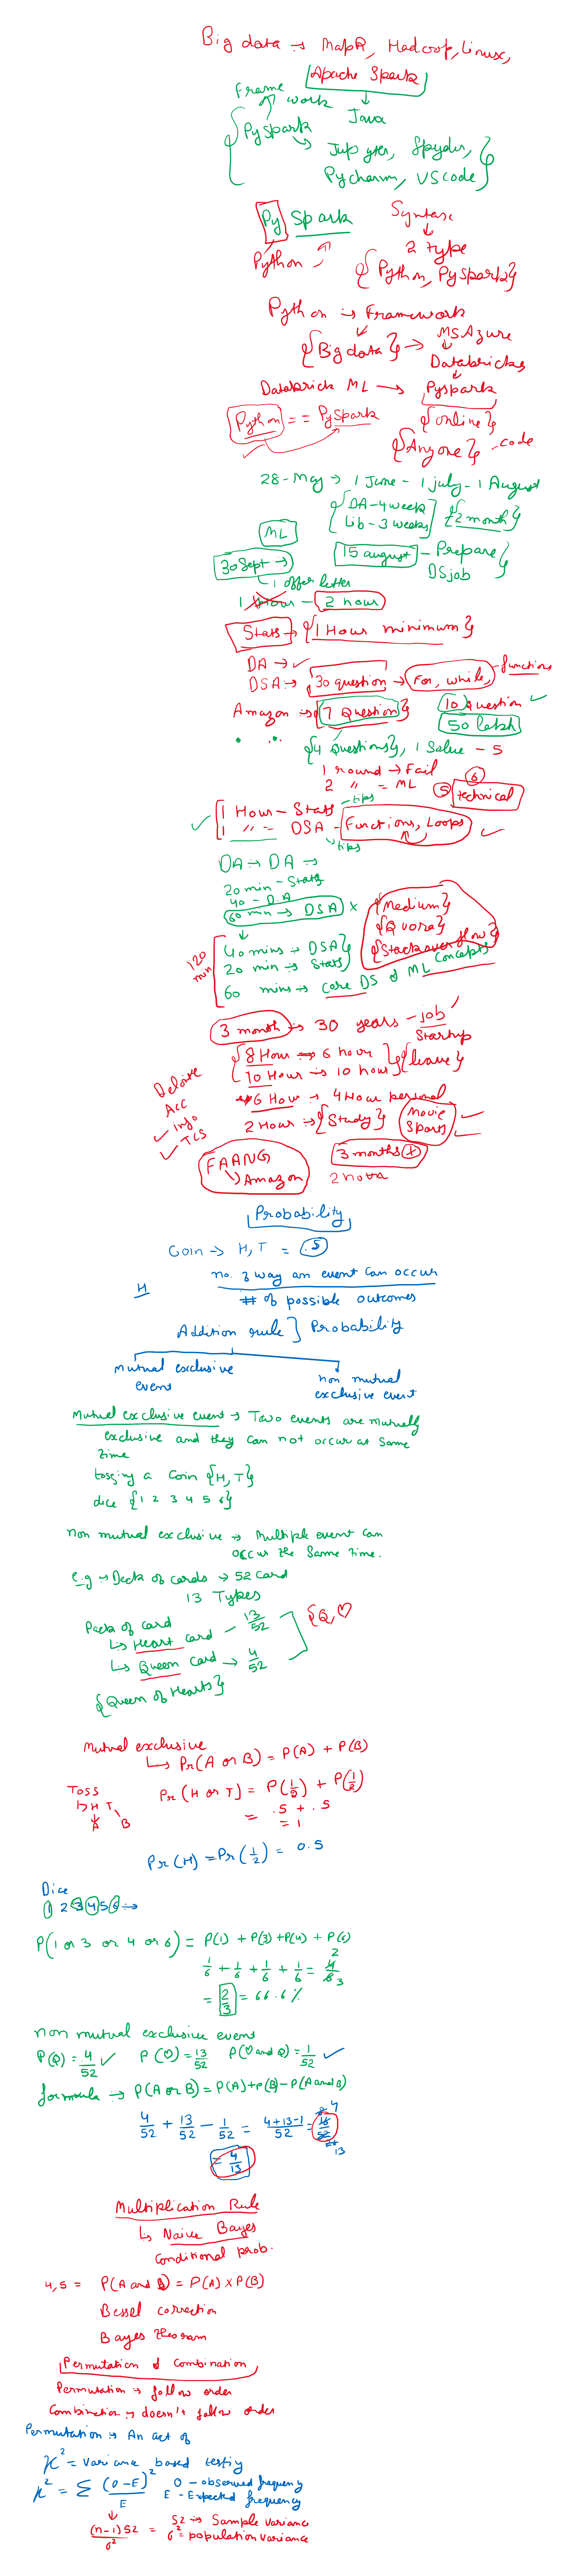 Big data → MapR, Hadoop, Linux,
Apache Spark
Frame work
Java
{ Pyspark → Jupyter, Spyder,
Pycharm, VScode }
Py Spark
Python
Syntax
2 type
{ Python, Pyspark }
Python → Framework
{ Big data } → MS Azure
Databricks
Databrick ML → Pyspark
Python == PySpark { online }
{ Anyone } - code
28-May → 1 June - 1 july - 1 August
{ DA - 4 week
Lib - 3 weeks } { 2 month }
ML
30 Sept → 15 august - Prepare
DS job }
↳ 1 offer letter
1 Hour - 2 hour
Stats → { 1 Hour minimum }
DA → ✓
DSA → 30 question → For, while, - functions
Amazon → { 7 Question } 10 Question ✓
50 lakh
{ 4 Questions }, 1 Solve - 5
1 round → Fail
2 " = ML 5 6 technical
1 Hour - Stats - tips
1 " = DSA - Functions, Loops
↳ tips
DA → DA →
20 min - Stats
40 - DA
60 min → DSA ×
{ Medium }
{ Quora }
{ Stack over flow }
120 min
40 mins → DSA }
20 min → Stats }
60 mins → core DS & ML Concepts
3 month → 30 years - job
Startup
{ 8 Hour → 6 hour
10 Hour → 10 hour } { leave }
6 Hour → 4 Hour personal
2 Hour → { Study } Movie
Sports
Deloitte
Acc
Info
TCS
FAANG
↳ Amazon
3 months
2 hours
Probability
Coin → H, T = .5
H no. of way an event can occur
# of possible outcomes
Addition rule } Probability
Mutual exclusive
event
non mutual
exclusive event
Mutual exclusive event → Two events are mutually
exclusive and they can not occur at same
time
tossing a Coin { H, T }
dice { 1 2 3 4 5 6 }
non mutual exclusive → Multiple event can
occur the same time.
e.g → Deck of cards → 52 card
13 Types
Pack of card
↳ Heart card - 13/52
↳ Queen card → 4/52
{ Q, ♡
{ Queen of Hearts }
Mutual exclusive
↳ Pr(A or B) = P(A) + P(B)
Toss
↳ H T
A B
Pr(H or T) = P(1/2) + P(1/2)
= .5 + .5
= 1
Pr(H) = Pr(1/2) = 0.5
Dice
1 2 3 4 5 6 →
P(1 or 3 or 4 or 6) = P(1) + P(3) + P(4) + P(6)
1/6 + 1/6 + 1/6 + 1/6 = 4/6 2 3
= 2/3 = 66.6%
non mutual exclusive event
P(Q) = 4/52 ✓ P(♡) = 13/52 P(♡ and Q) = 1/52 ✓
formula → P(A or B) = P(A) + P(B) - P(A and B)
4/52 + 13/52 - 1/52 = (4+13-1)/52 = 16/52 4 13
= 4/13
Multiplication Rule
↳ Naive Bayes
Conditional prob.
4,5 = P(A and B) = P(A) × P(B)
Bessel correction
Bayes theoram
Permutation & Combination
Permutation → follow order
Combination → doesn't follow order
Permutation → An act of
χ² = variance based testing
χ² = Σ (O-E)²/E O - observed frequency
E - Expected frequency
(n-1)S2/σ² = S2 → Sample variance
σ² = population variance